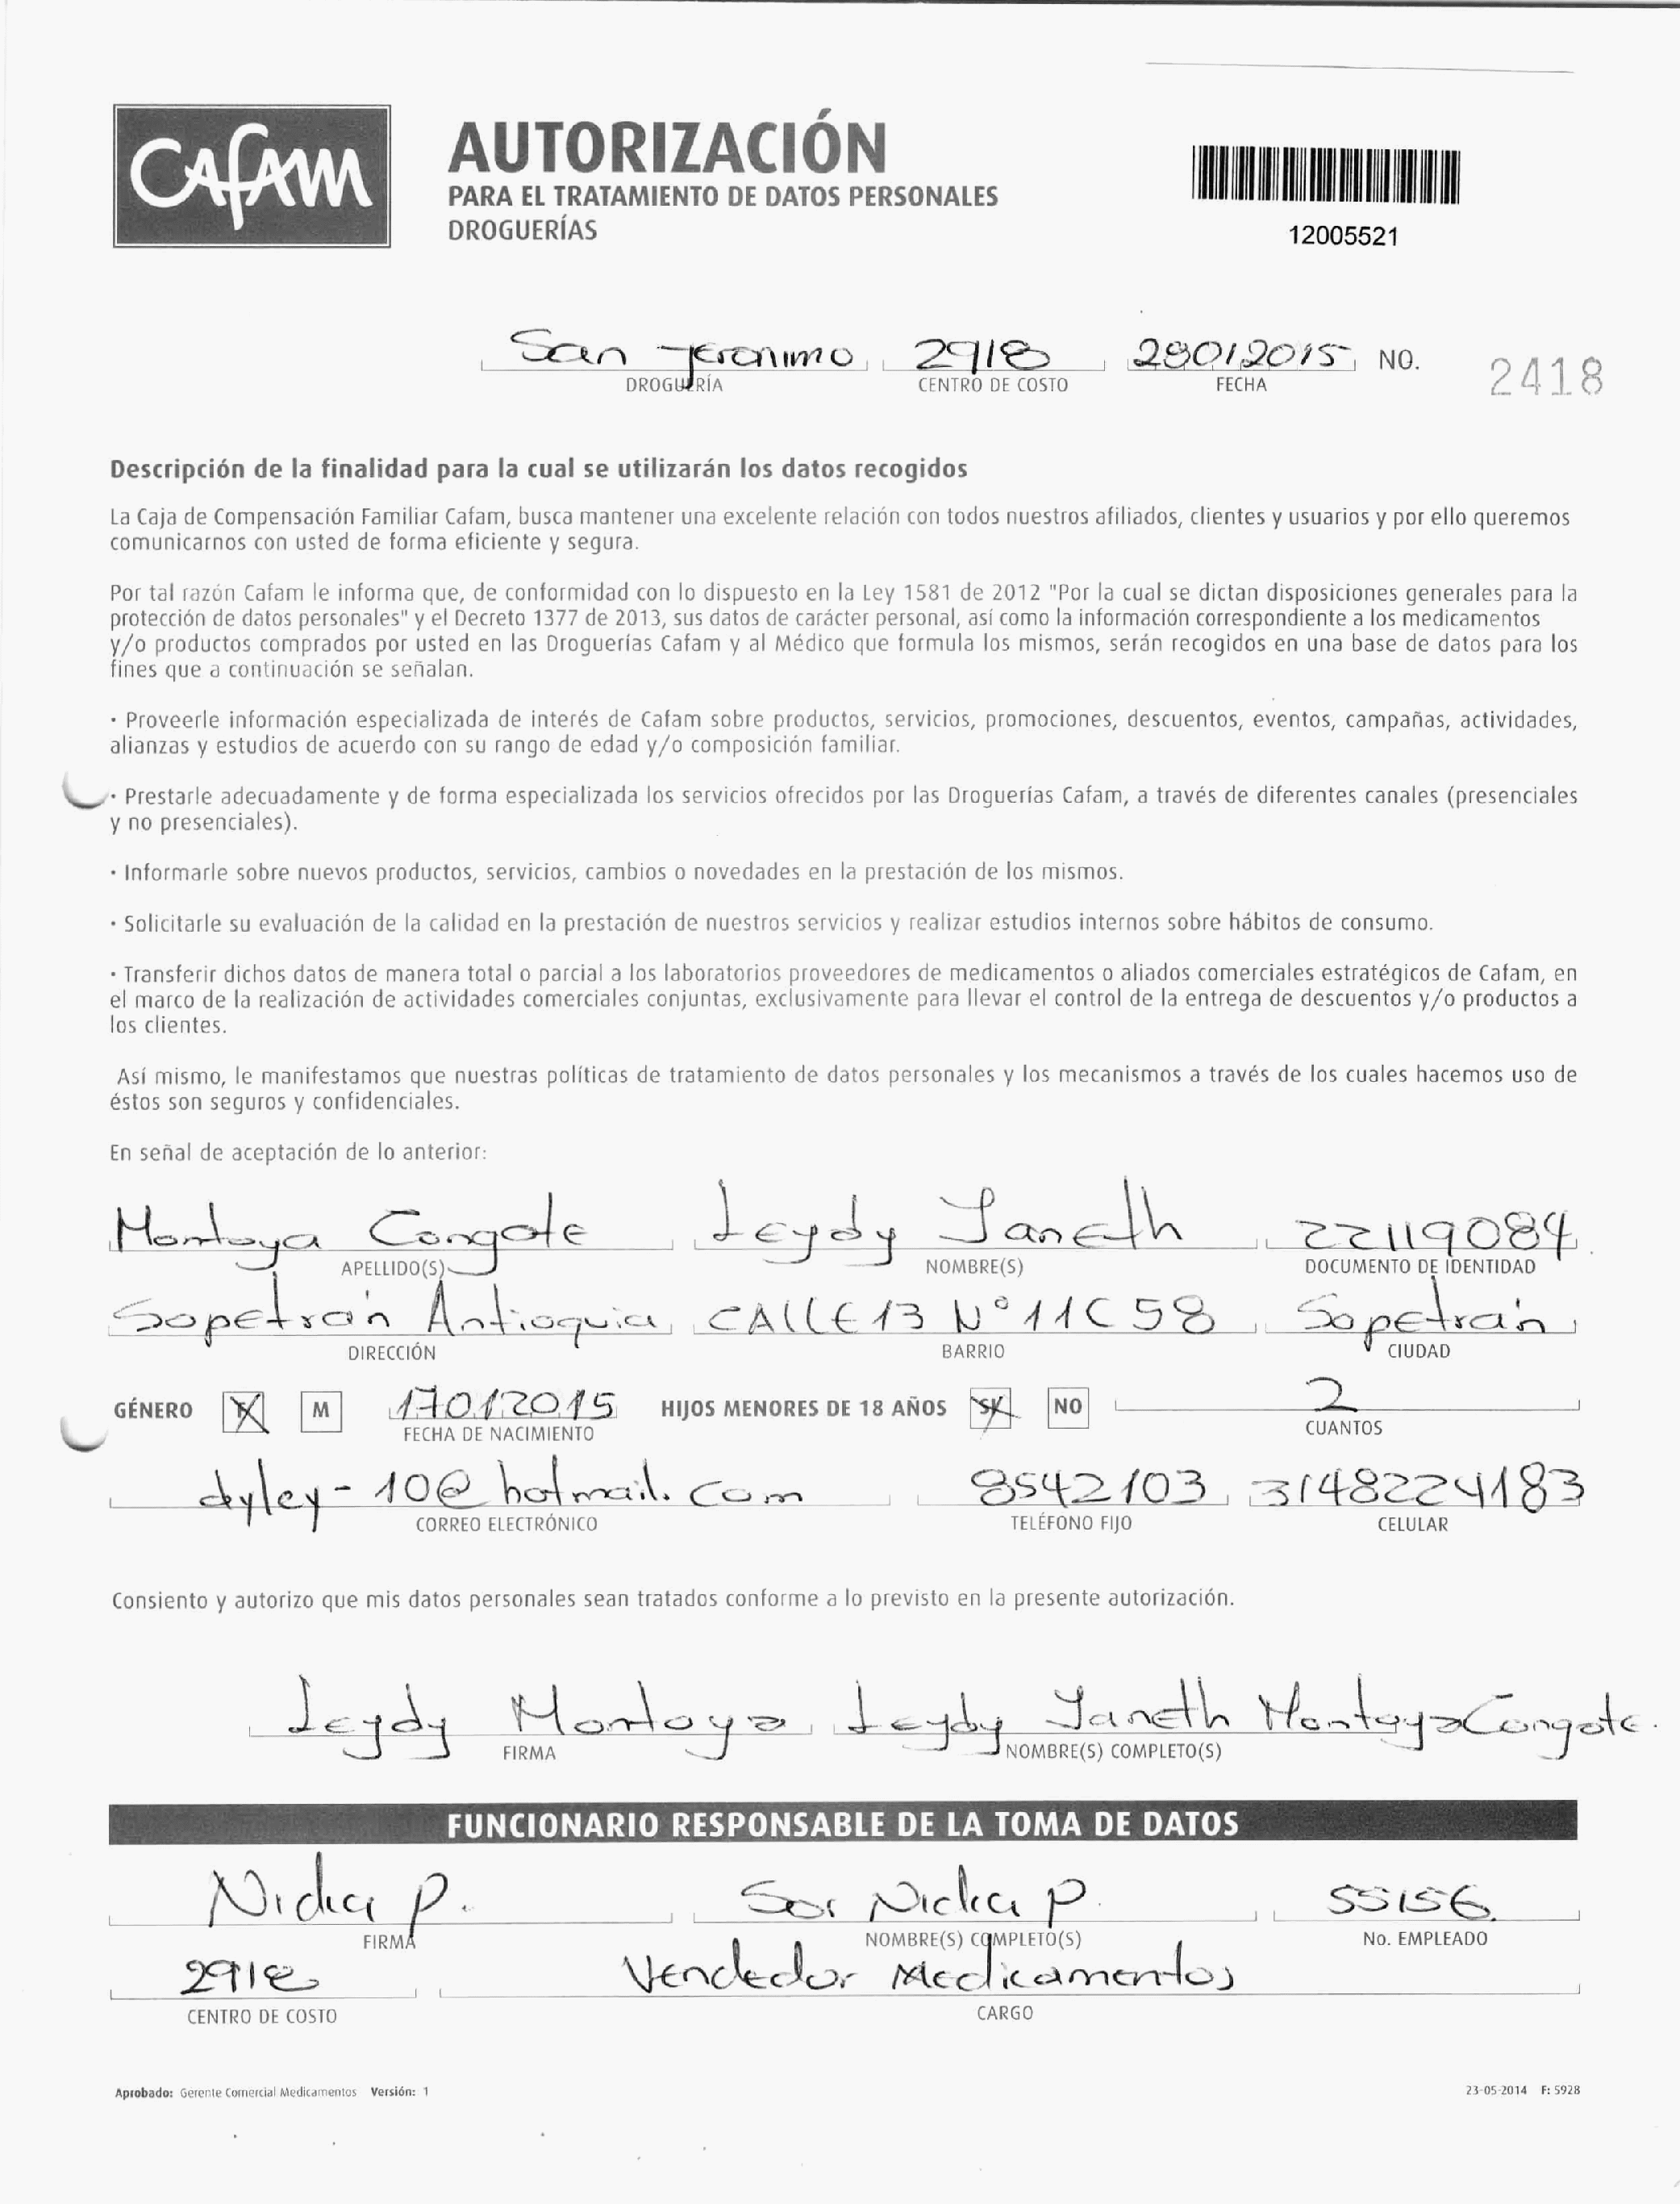 CAFAM
AUTORIZACIÓN
PARA EL TRATAMIENTO DE DATOS PERSONALES
DROGUERÍAS
12005521
San Jeronimo 2918 28012015 NO. 2418
DROGUERÍA CENTRO DE COSTO FECHA
Descripción de la finalidad para la cual se utilizarán los datos recogidos
La Caja de Compensación Familiar Cafam, busca mantener una excelente relación con todos nuestros afiliados, clientes y usuarios y por ello queremos
comunicarnos con usted de forma eficiente y segura.
Por tal razón Cafam le informa que, de conformidad con lo dispuesto en la Ley 1581 de 2012 "Por la cual se dictan disposiciones generales para la
protección de datos personales" y el Decreto 1377 de 2013, sus datos de carácter personal, así como la información correspondiente a los medicamentos
y/o productos comprados por usted en las Droguerías Cafam y al Médico que formula los mismos, serán recogidos en una base de datos para los
fines que a continuación se señalan.
• Proveerle información especializada de interés de Cafam sobre productos, servicios, promociones, descuentos, eventos, campañas, actividades,
alianzas y estudios de acuerdo con su rango de edad y/o composición familiar.
• Prestarle adecuadamente y de forma especializada los servicios ofrecidos por las Droguerías Cafam, a través de diferentes canales (presenciales
y no presenciales).
• Informarle sobre nuevos productos, servicios, cambios o novedades en la prestación de los mismos.
• Solicitarle su evaluación de la calidad en la prestación de nuestros servicios y realizar estudios internos sobre hábitos de consumo.
• Transferir dichos datos de manera total o parcial a los laboratorios proveedores de medicamentos o aliados comerciales estratégicos de Cafam, en
el marco de la realización de actividades comerciales conjuntas, exclusivamente para llevar el control de la entrega de descuentos y/o productos a
los clientes.
Así mismo, le manifestamos que nuestras políticas de tratamiento de datos personales y los mecanismos a través de los cuales hacemos uso de
éstos son seguros y confidenciales.
En señal de aceptación de lo anterior:
Montoya Congote Leydy Janeth 22119084
APELLIDO(S) NOMBRE(S) DOCUMENTO DE IDENTIDAD
Sopetrán Antioquia CALLE 13 N° 11C 58 Sopetrán
DIRECCIÓN BARRIO CIUDAD
GÉNERO F M 17012015 HIJOS MENORES DE 18 AÑOS SI NO 2
FECHA DE NACIMIENTO CUANTOS
dyley-10@hotmail.com 8542103 3148224183
CORREO ELECTRÓNICO TELÉFONO FIJO CELULAR
Consiento y autorizo que mis datos personales sean tratados conforme a lo previsto en la presente autorización.
Leydy Montoya Leydy Janeth Montoya Congote.
FIRMA NOMBRE(S) COMPLETO(S)
FUNCIONARIO RESPONSABLE DE LA TOMA DE DATOS
Nidia P. Sor Nidia P. 55156
FIRMA NOMBRE(S) COMPLETO(S) No. EMPLEADO
2918 Vendedor Medicamentos
CENTRO DE COSTO CARGO
Aprobado: Gerente Comercial Medicamentos Versión: 1 23-05-2014 F: 5928